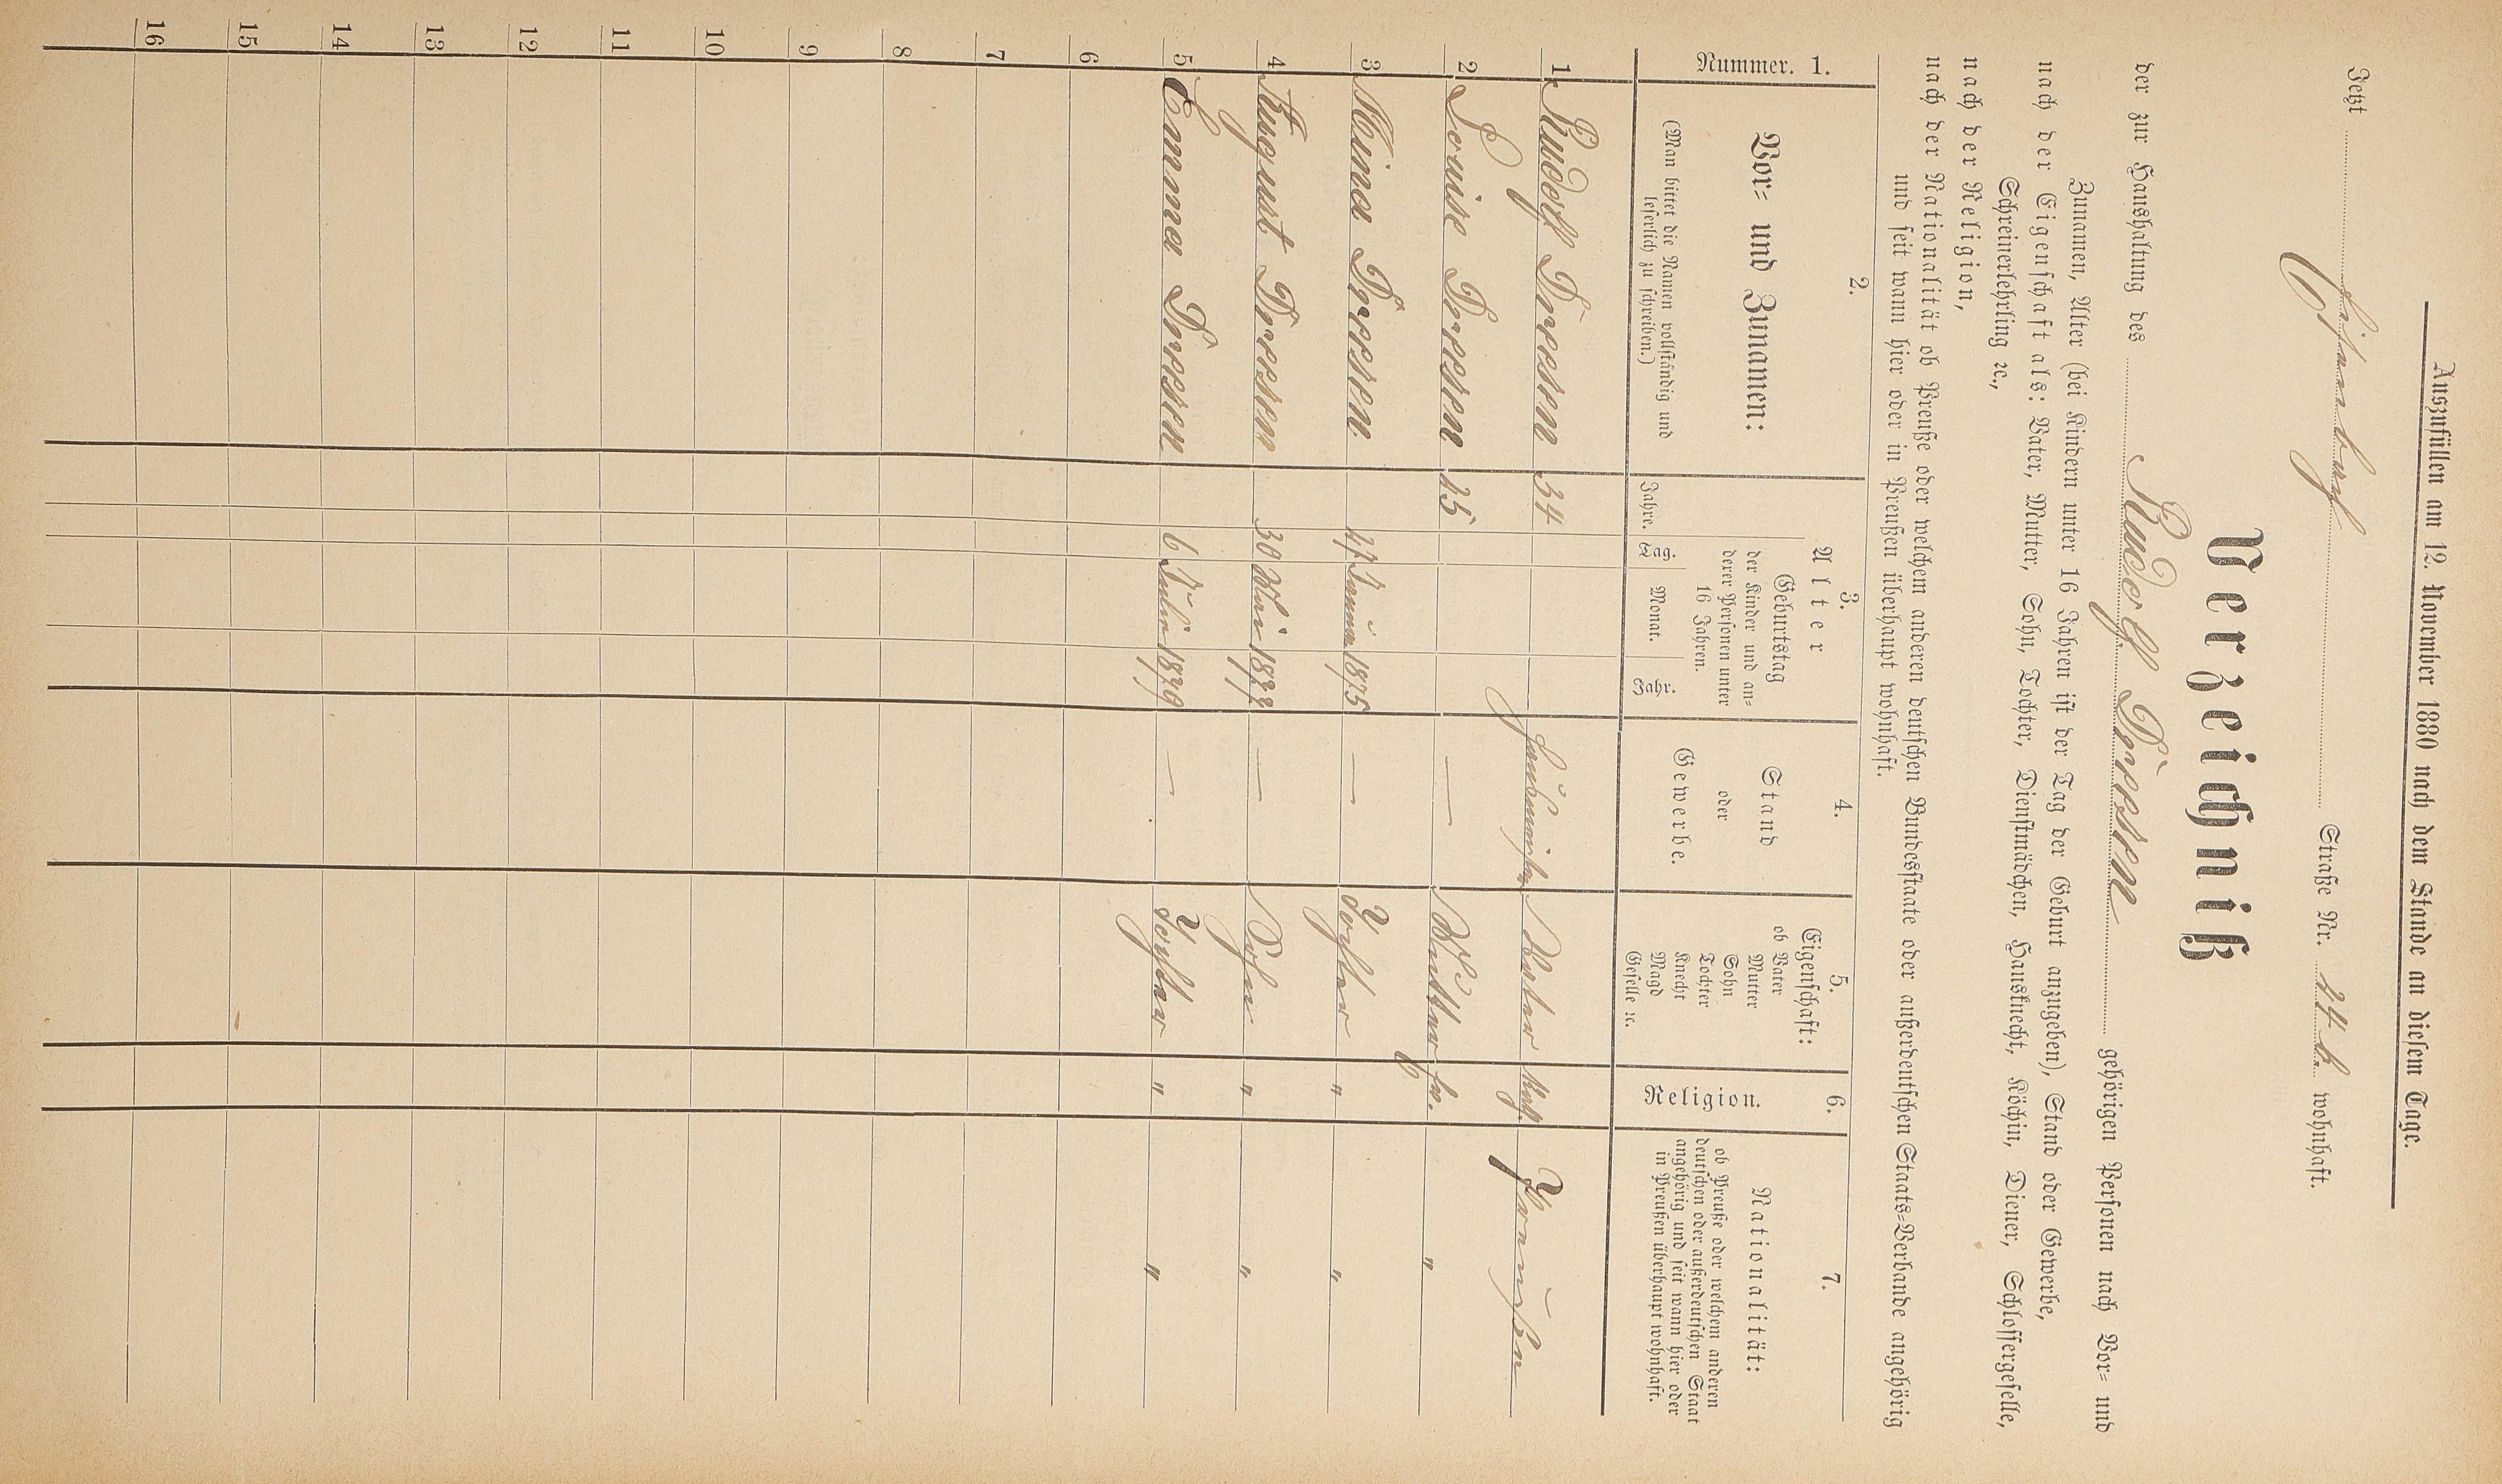 Auszufüllen am 12. November 1880 nach dem Stande an diesem Tage.
Jetzt Straße Nr. 24 b. wohnhaft.
Verzeichniß
der zur Haushaltung des Rudolf Dressen gehörigen Personen nach Vor- und
Zunamen, Alter (bei Kindern unter 16 Jahren ist der Tag der Geburt anzugeben), Stand oder Gewerbe,
nach der Eigenschaft als: Vater, Mutter, Sohn, Tochter, Dienstmädchen, Hausknecht, Köchin, Diener, Schlossergeselle,
Schreinerlehrling ꝛc.,
nach der Religion,
nach der Nationalität ob Preuße oder welchem anderen deutschen Bundesstaate oder außerdeutschen Staats-Verbande angehörig
und seit wann hier oder in Preußen überhaupt wohnhaft.
1. Nummer.
2. Vor- und Zunamen:
(Man bittet die Namen vollständig und
leserlich zu schreiben.)
3. Alter
Jahre.
Geburtstag
der Kinder und an-
derer Personen unter
16 Jahren.
Tag. Monat. Jahr.
4. Stand
oder
Gewerbe.
5. Eigenschaft:
ob Vater
Mutter
Sohn
Tochter
Knecht
Magd
Geselle ꝛc.
6. Religion.
7. Nationalität:
ob Preuße oder welchem anderen
deutschen oder außerdeutschen Staat
angehörig und seit wann hier oder
in Preußen überhaupt wohnhaft.
1 Rudolf Dressen 34 Vater Kath. Preußen
2 Louise Dressen 25 — Mutter "
3 Mina Dressen Januar 1875 — Tochter " "
4 August Dressen 30 Mai 1877 — Sohn " "
5 Emma Dressen 6 Juli 1879 — Tochter " "
6
7
8
9
10
11
12
13
14
15
16